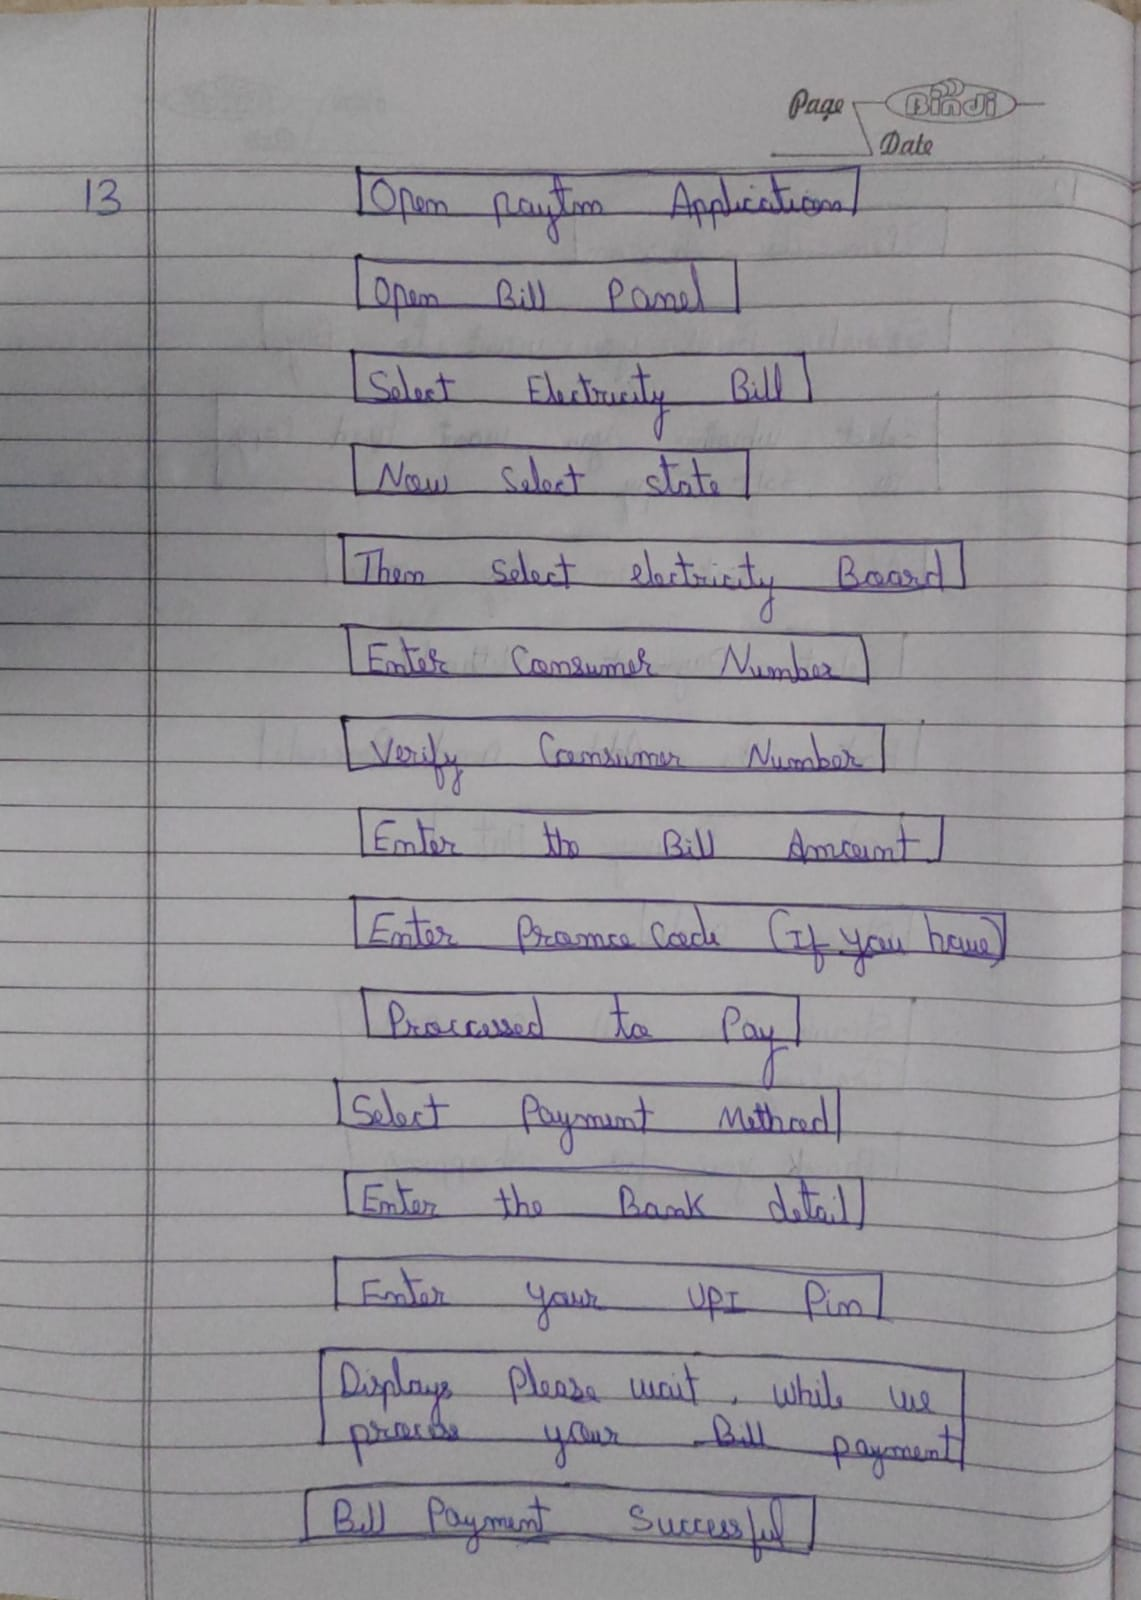 Page Bindi
Date
13
Open paytm Application
Open Bill Panel
Select Electricity Bill
Now select state
Then select electricity Board
Enter Consumer Number
Verify Consumer Number
Enter the Bill Amount
Enter Promoe Code (If you have)
Proccessed to Pay
Select Payment Method
Enter the Bank detail
Enter your UPI Pin
Displays please wait, while we
process your Bill payment
Bill Payment Successful